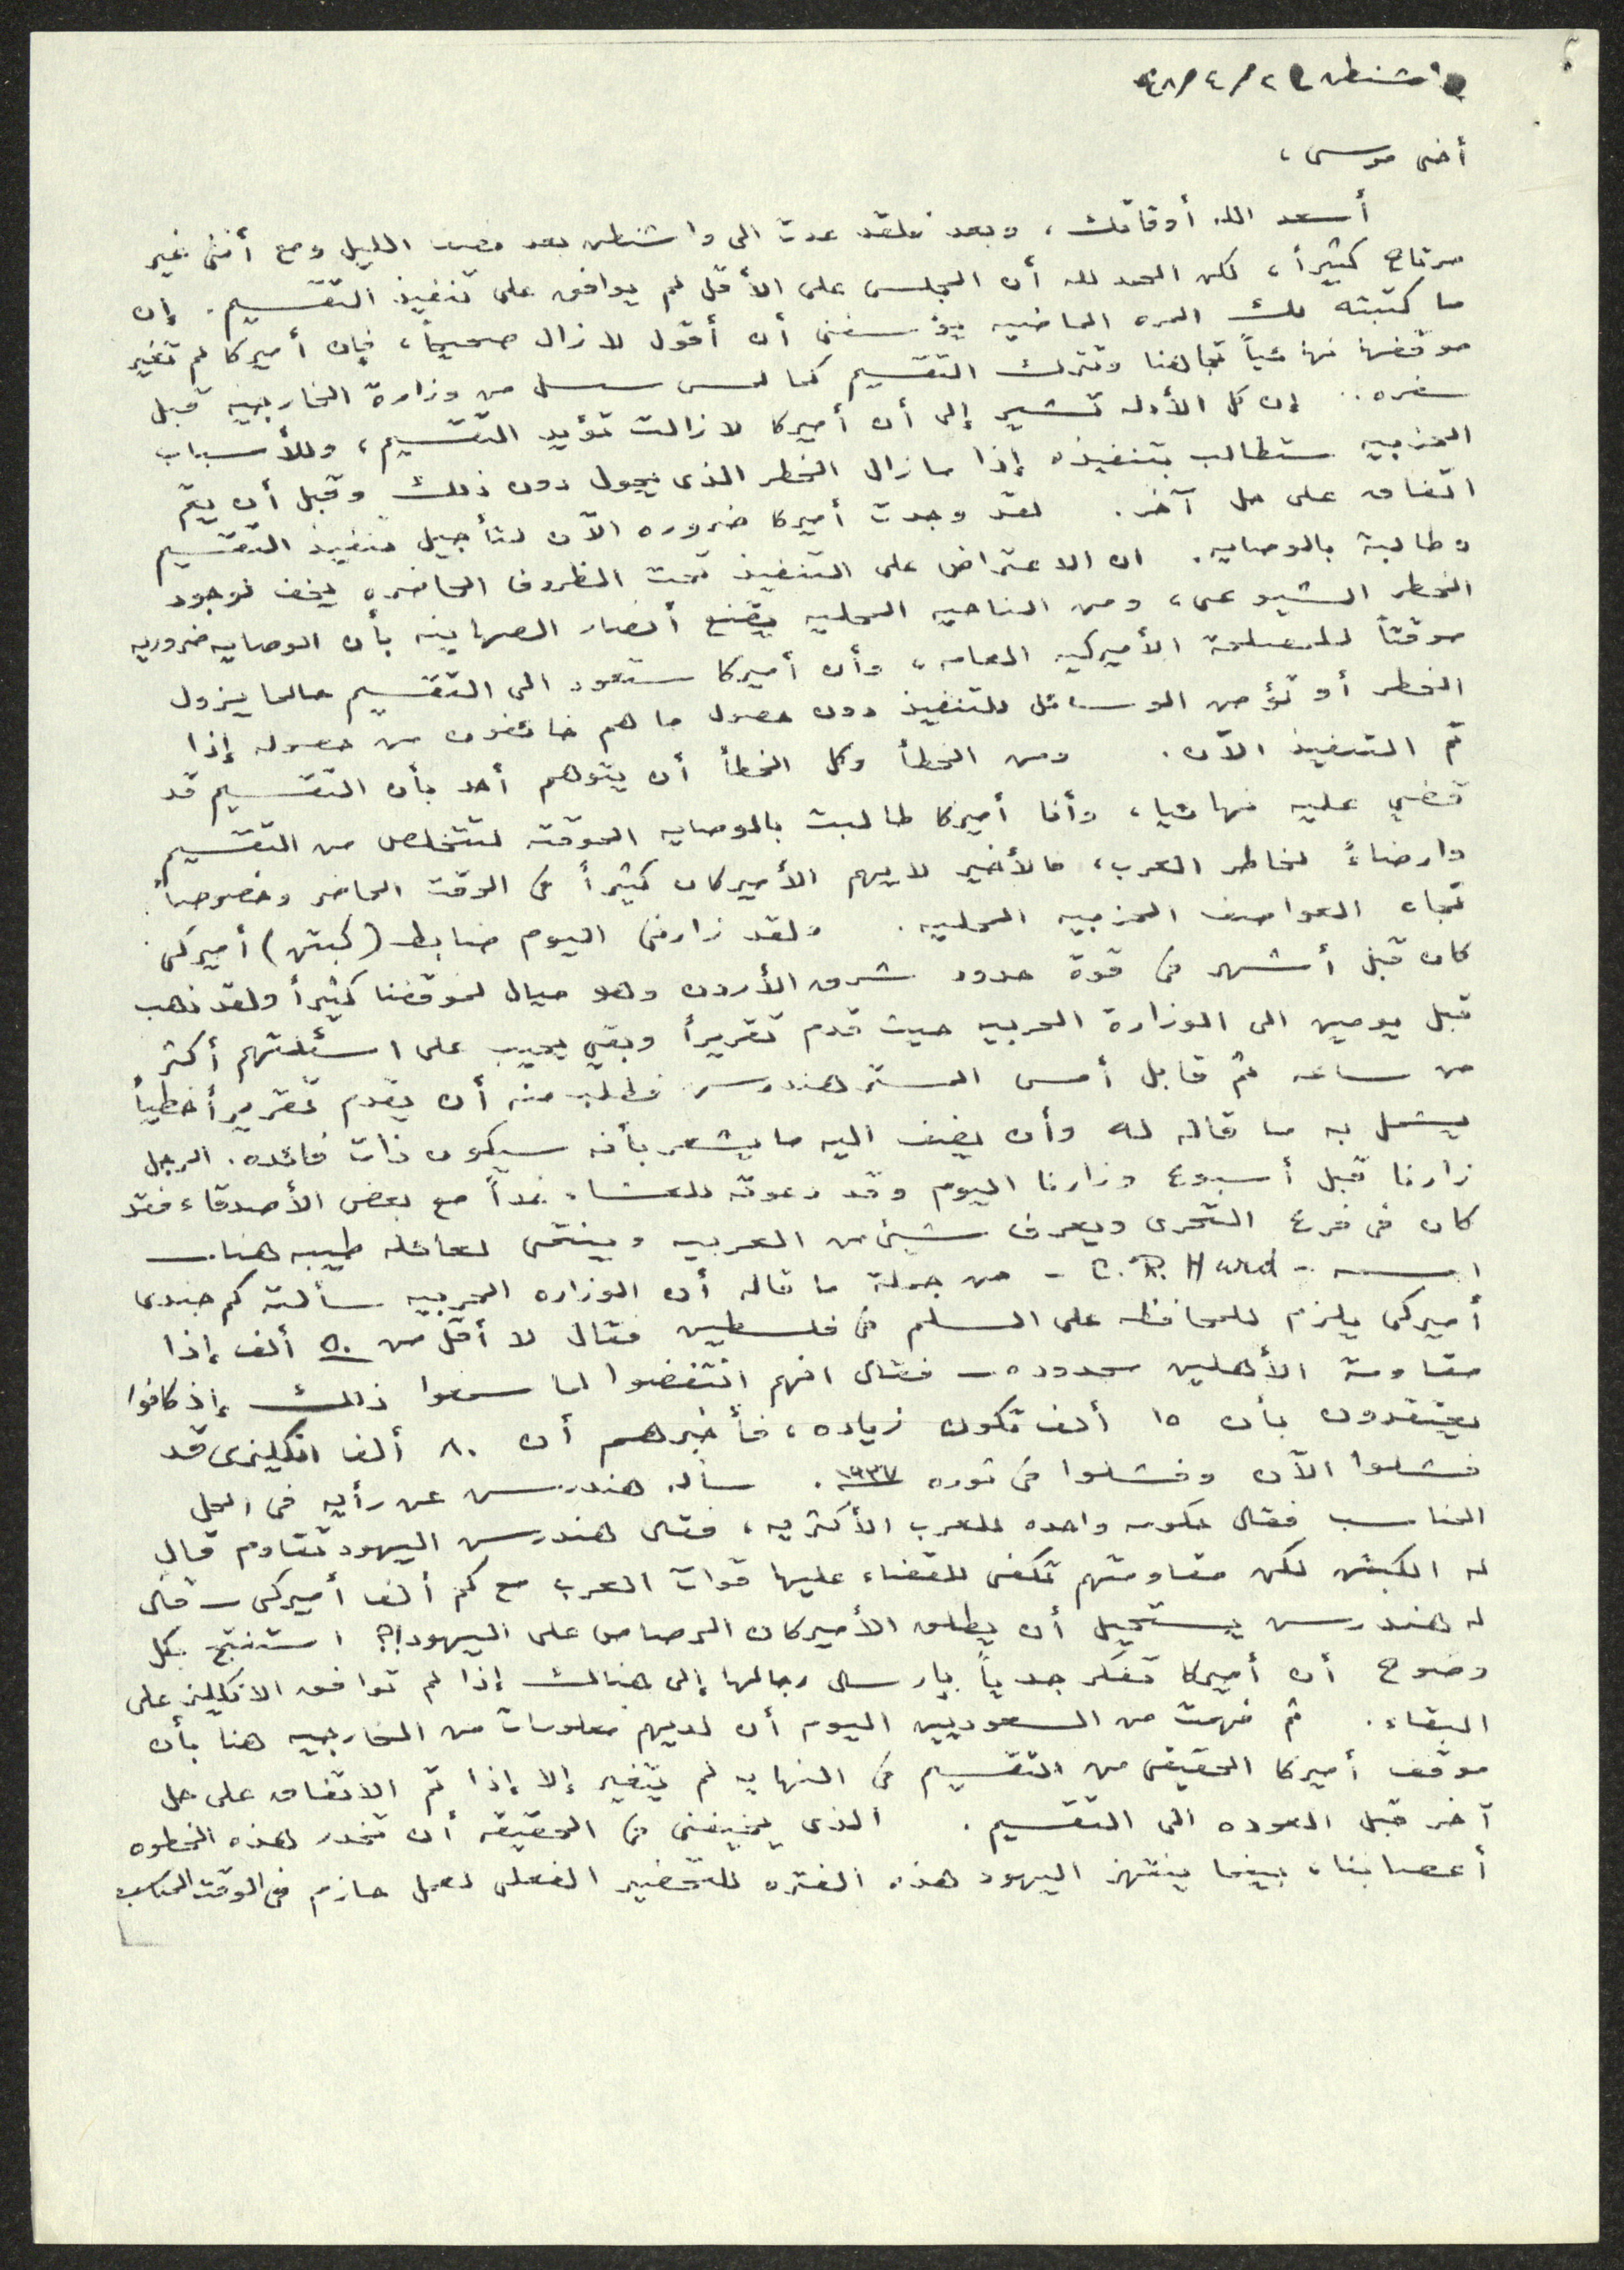 واشنطن ٢ / ٤ / ٤٨
أخي موسى،
أسعد الله أوقاتك، وبعد فلقد عدت الى واشنطن بعد نصف الليل ومع أنني غير
مرتاح كثيراً، لكن الحمد لله أن المجلس على الأقل لم يوافق على تنفيذ التقسيم. إن
ما كتبته لك المره الماضيه يؤسفني أن أقول لازال صحيحاً، فإن أميركا لم تغير
موقفها نهائياً تجاهنا وتترك التقسيم كما لمس من وزارة الخارجيه قبل
سفره.. إن كل الأدله تشير إلى أن أميركا لا زالت تؤيد التقسيم، وللأسباب
الحزبيه ستطالب بتنفيذه إذا ما زال الخطر الذى يحول دون ذلك وقبل أن يتم
اتفاق على حل آخر. لقد وجدت أميركا ضروره الآن لتأجيل تنفيذ التقسيم
وطالبة بالوصايه. ان الاعتراض على التنفيذ تحت الظروف الحاضره يخفف لوجود
الخطر الشيوعى، ومن الناحيه المحليه يقنع أنصار الصهاينه بأن الوصايه ضروريه
موقتاً للمصلحة الأميركيه العامه، وأن أميركا ستعود الى التقسيم حالما يزول
الخطر أو تؤمن الوسائل للتنفيذ دون حصول ما هم خائفون من حصوله إذا
تم التنفيذ الآن. ومن الخطأ وكل الخطأ أن يتوهم أحد بأن التقسيم قد
قضي عليه نهائيا، وأنا أميركا طالبت بالوصايه الموقته لتتخلص من التقسيم
وارضاءً لخاطر العرب، فالأخير لايهم الأميركان كثيراً في الوقت الحاضر وخصوصاً
تجاه العواصف الحزبيه المحليه. ولقد زارني اليوم ضابط (كبتن) أميركي
كان قبل أشهر في قوة حدود شرق الأردن وهو ميال لموقفنا كثيراً ولقد ذهب
قبل يومين الى الوزارة الحربيه حيث قدم تقريراً وبقي يجيب على اسئلتهم أكثر
من ساعه ثم قابل أمس المستر هندرسن فطلب منه أن يقدم تقريراً خطياً
يشمل به ما قاله له وأن يضف اليه ما يشعر بأنه سيكون ذات فائده. الرجل
زارنا قبل أسبوع وزارنا اليوم وقد دعوته للعشاء غداً مع بعض الأصدقاء فقد
كان في فرع التحرى ويعرف شيئ من العربيه وينتمى لعائله طيبه هنا.
اسمه - C. R. Hurd - من جملة ما قاله أن الوزاره الحربيه سألته كم جندى
أميركى يلزم للمحافظه على السلم في فلسطين فقال لا أقل من ٥٠ ألف إذا
مقاومة الأهلين محدوده - فقال انهم انتفضوا لما سمعوا ذلك إذ كانوا
يعتقدون بأن ١٥ ألف تكون زياده، فأخبرهم أن ٨٠ ألف انكليزى قد
فشلوا الآن وفشلوا في ثوره ١٩٣٧. سأله هندرسن عن رأيه في الحل
المناسب فقال حكومه واحده للعرب الأكثريه، فقال هندرسن اليهود تقاوم قال
له الكبتن لكن مقاومتهم تكفى للقضاء عليها قوات العرب مع كم ألف أميركى - قال
له هندرسن يستحيل أن يطلق الأميركان الرصاص على اليهود!؟ استنتج بكل
وضوح أن أميركا تفكر جدياً بارسال رجالها إلى هنالك إذا لم توافق الانكليز على
البقاء. ثم فهمت من السعوديين اليوم أن لديهم معلومات من الخارجيه هنا بأن
موقف أميركا الحقيقى من التقسيم في النهايه لم يتغير إلا إذا تم الاتفاق على حل
آخر قبل العوده الى التقسيم. الذى يخيفنى في الحقيقه أن تخدر هذه الخطوه
أعصابنا، بينما ينتهز اليهود هذه الفتره للتحضير الفعلى لعمل حازم في الوقت المناسب